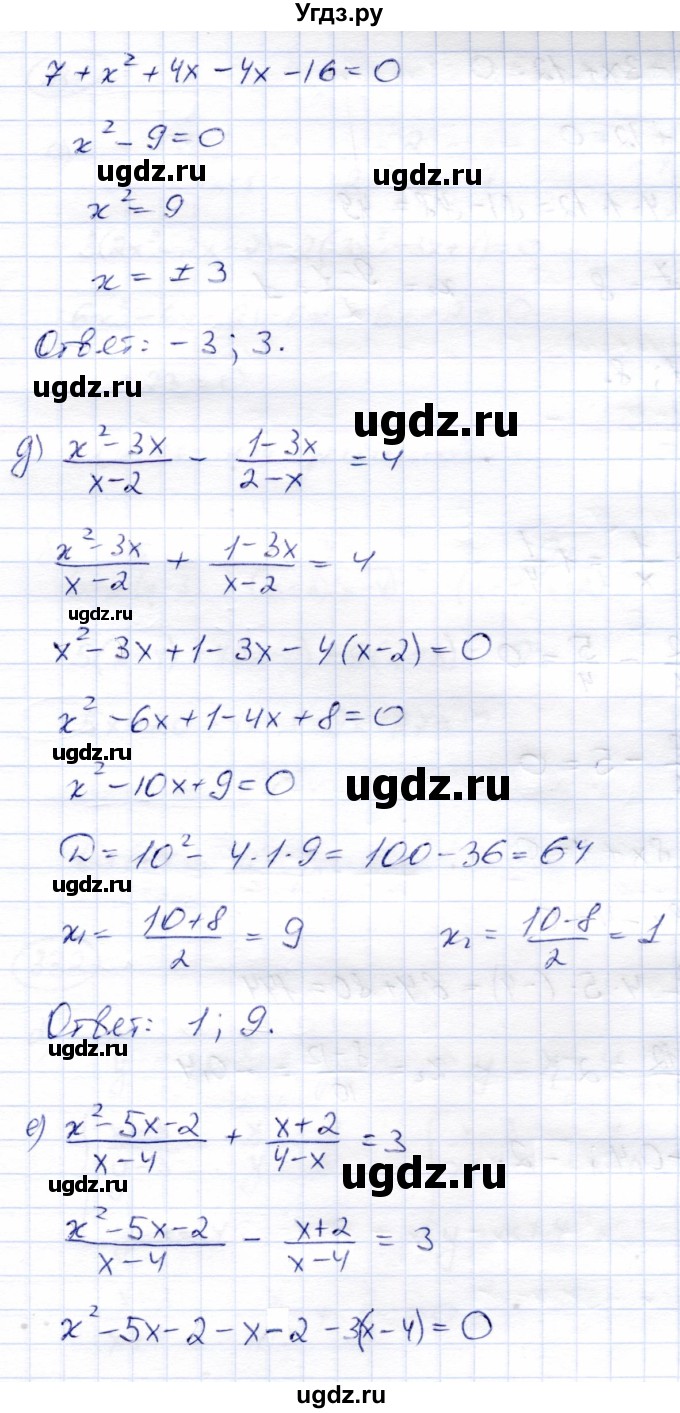 Угдз.ру
7 + x² + 4x - 4x - 16 = 0
x² - 9 = 0
ugdz.ru ugdz.ru
x² = 9
x = ± 3
Ответ: - 3 ; 3.
ugdz.ru
ugdz.ru
д) (x² - 3x)/(x - 2) - (1 - 3x)/(2 - x) = 4
(x² - 3x)/(x - 2) + (1 - 3x)/(x - 2) = 4
ugdz.ru
x² - 3x + 1 - 3x - 4(x - 2) = 0
x² - 6x + 1 - 4x + 8 = 0
ugdz.ru
x² - 10x + 9 = 0
ugdz.ru
D = 10² - 4·1·9 = 100 - 36 = 64
ugdz.ru
x₁ = (10 + 8)/2 = 9 x₂ = (10 - 8)/2 = 1
Ответ: 1 ; 9.
ugdz.ru
е) (x² - 5x - 2)/(x - 4) + (x + 2)/(4 - x) = 3
ugdz.ru ugdz.ru
(x² - 5x - 2)/(x - 4) - (x + 2)/(x - 4) = 3
x² - 5x - 2 - x - 2 - 3(x - 4) = 0
ugdz.ru